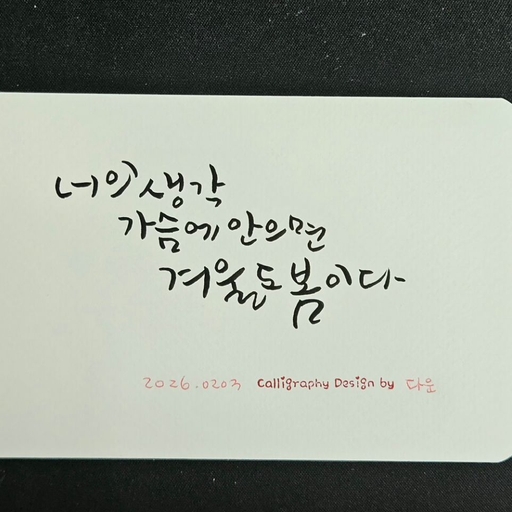 너의 생각
가슴에 안으면
겨울도 봄이다
2026.0203 Calligraphy Design by 다운